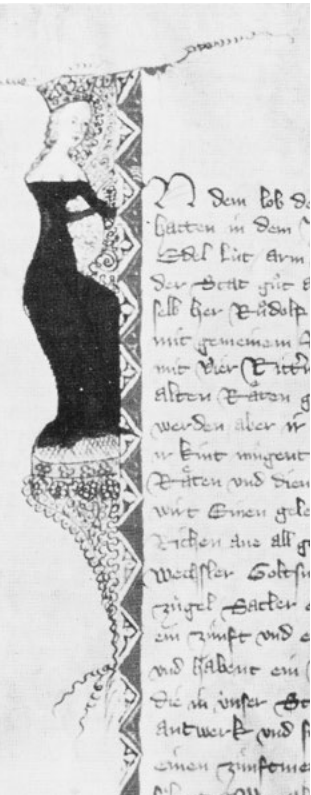 N dem lob de
hatten in dem
Edel Lüt arm
der Stat güt a
selb her Rüdolf
mit gemeinem
mit vier Rittern
alten Räten g
werden aber ir
ir kint mugent
Räten vnd dien
wirt Einen gele
Richen ane all ge
Wechsler Goltsm
zügel Satler
ein zunft vnd e
vnd habent ein
die in vnser St
antwerk vnd si
einen zunftme